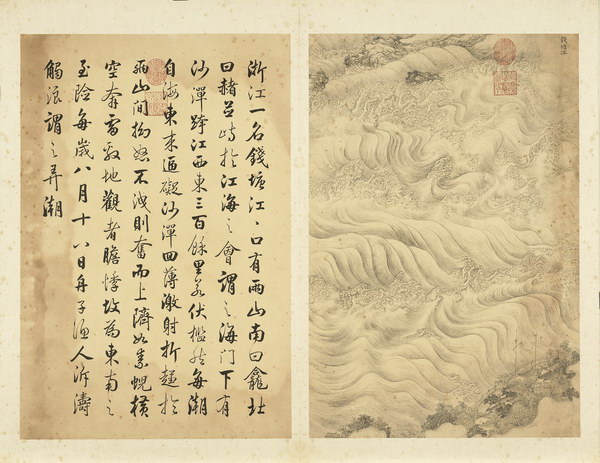 浙江一名錢塘江〻口有兩山南曰龕北
曰赭並峙於江海之會謂之海門下有
沙潬跨江西東三百餘里若伏檻然每潮
自海東來逼礙沙潬回薄激射折趨於
兩山間拗怒不洩則奮而上隮如素蜺橫
空奔雷殷地觀者膽悸故為東南之
至險每歲八月十八日舟子漁人泝濤
觸浪謂之弄潮
錢塘江